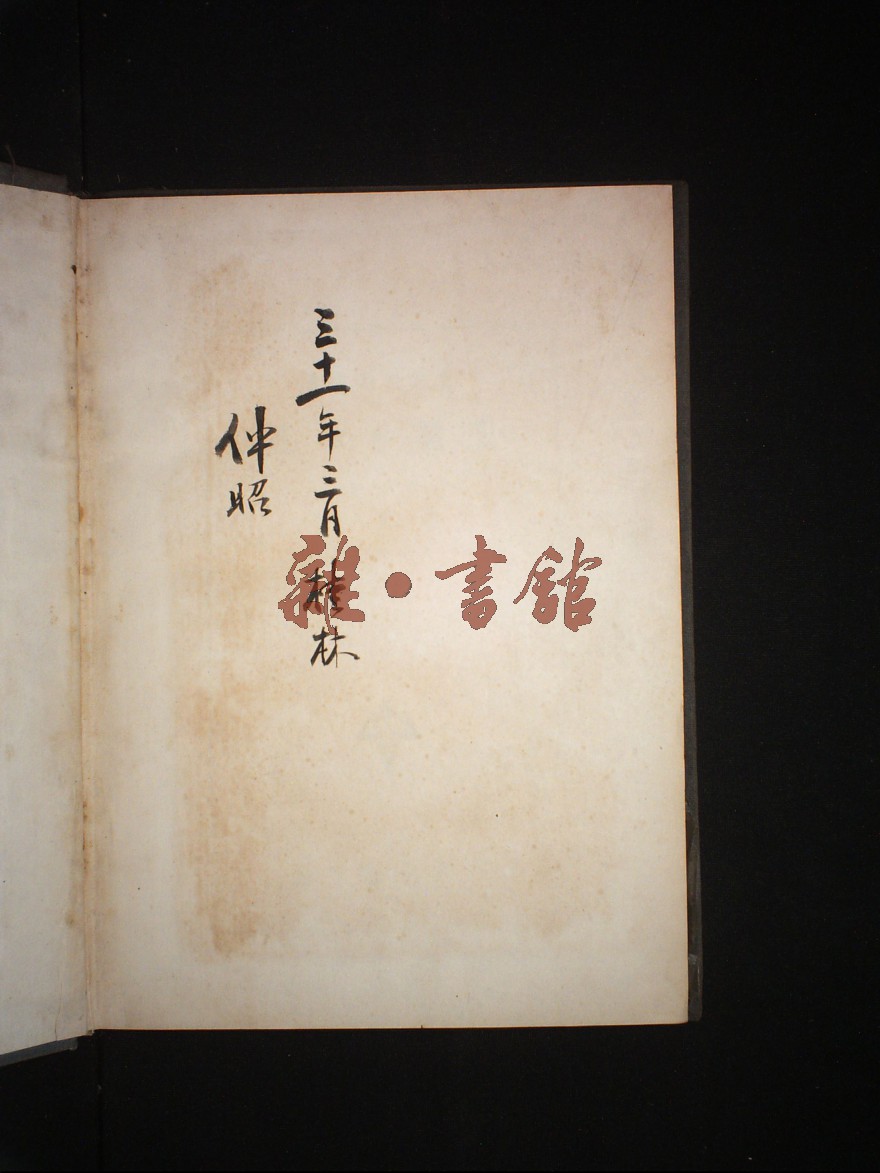 三十一年三月桂林
仲昭
雜·書館